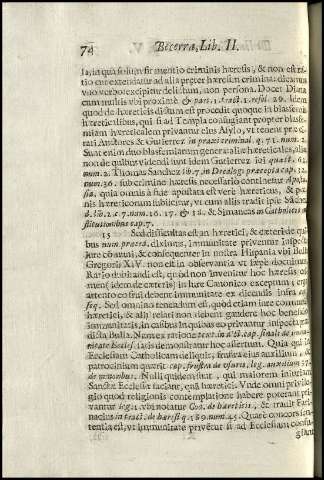 74 Becerra, Lib. II.
la, in qua solum fit mentio criminis hæresis, & non est ra-
tio cur extendatur ad alia præter hæresim crimina: dicam
uno verbo excipitur delictum, non persona. Docet Diana
cum multis ubi proximè & part. 1. tract. 1. resol. 29. Idem
quod de hæreticis dictum est procedit quoque in blasfemis
hæreticalibus, qui si ad Templa confugiant propter blasfe-
miam hæreticalem privantur eius Asylo, ut tenent præci-
Auctores & Gutierrez in praxi criminal. q. 71. num. 2.
Sunt enim duo blasfemiarum genera: aliæ hæreticales, aliæ
non de quibus videndi sunt idem Gutierrez
num. 2. Thomas Sanchez lib. 7. in Decalog. præcepta cap. 12.
num. 36. sub crimine hæresis necessario continetur Aposta-
sia, quia omnis à fide apostata est verè hæreticus, & pœ-
nis hæreticorum subiicitur, ut cum aliis tradit ipse Sanchez
d. lib. 2. c. 7. num. 16. 17. & 18. & Simancas in Catholicis in-
stitutionibus cap. 7.
15 Sed difficultas est an hæretici, & cæteri de qui-
bus num. præced. diximus, immunitate priventur inspecto
iure communi, & consequenter in nostra Hispania ubi Bulla
Gregorii XIV. non est in observantia ut sæpe
Ratio dubitandi est, quod non invenitur hoc hæresis cri-
men (idem de cæteris) in Iure Canonico exceptum, ergo
attento eo frui debent immunitate ex dictis infra
seq. Sed omnino tenendum est, quod etiam iure communi
hæretici, & alii relati non debent gaudere hoc beneficio
immunitatis, in casibus in quibus eo privantur, inspecta præ-
dicta Bulla. Nam ex ratione text. in d. cap. finale de immu-
nitate Eccles. satis demonstratur hoc assertum. Quia qui in
Ecclesiam Catholicam deliquit, frustra eius auxilium, &
patrocinium quærit cap. frustra de usuris, leg. auxilium 37.
de minoribus. Nulli quidem sunt, qui maiorem iniuriam
Sanctæ Ecclesiæ faciant, quàm hæretici: Unde omni privile-
gio quod religionis contemplatione habere poterant pri-
vantur leg. 1. ubi notatur Cod. de hæreticis, & tradit Fari-
nacius in tract. de hæresi q. 189. num. 45. Quare concors sen-
tentia est, ut immunitate privetur si ad Ecclesiam confu-
giant